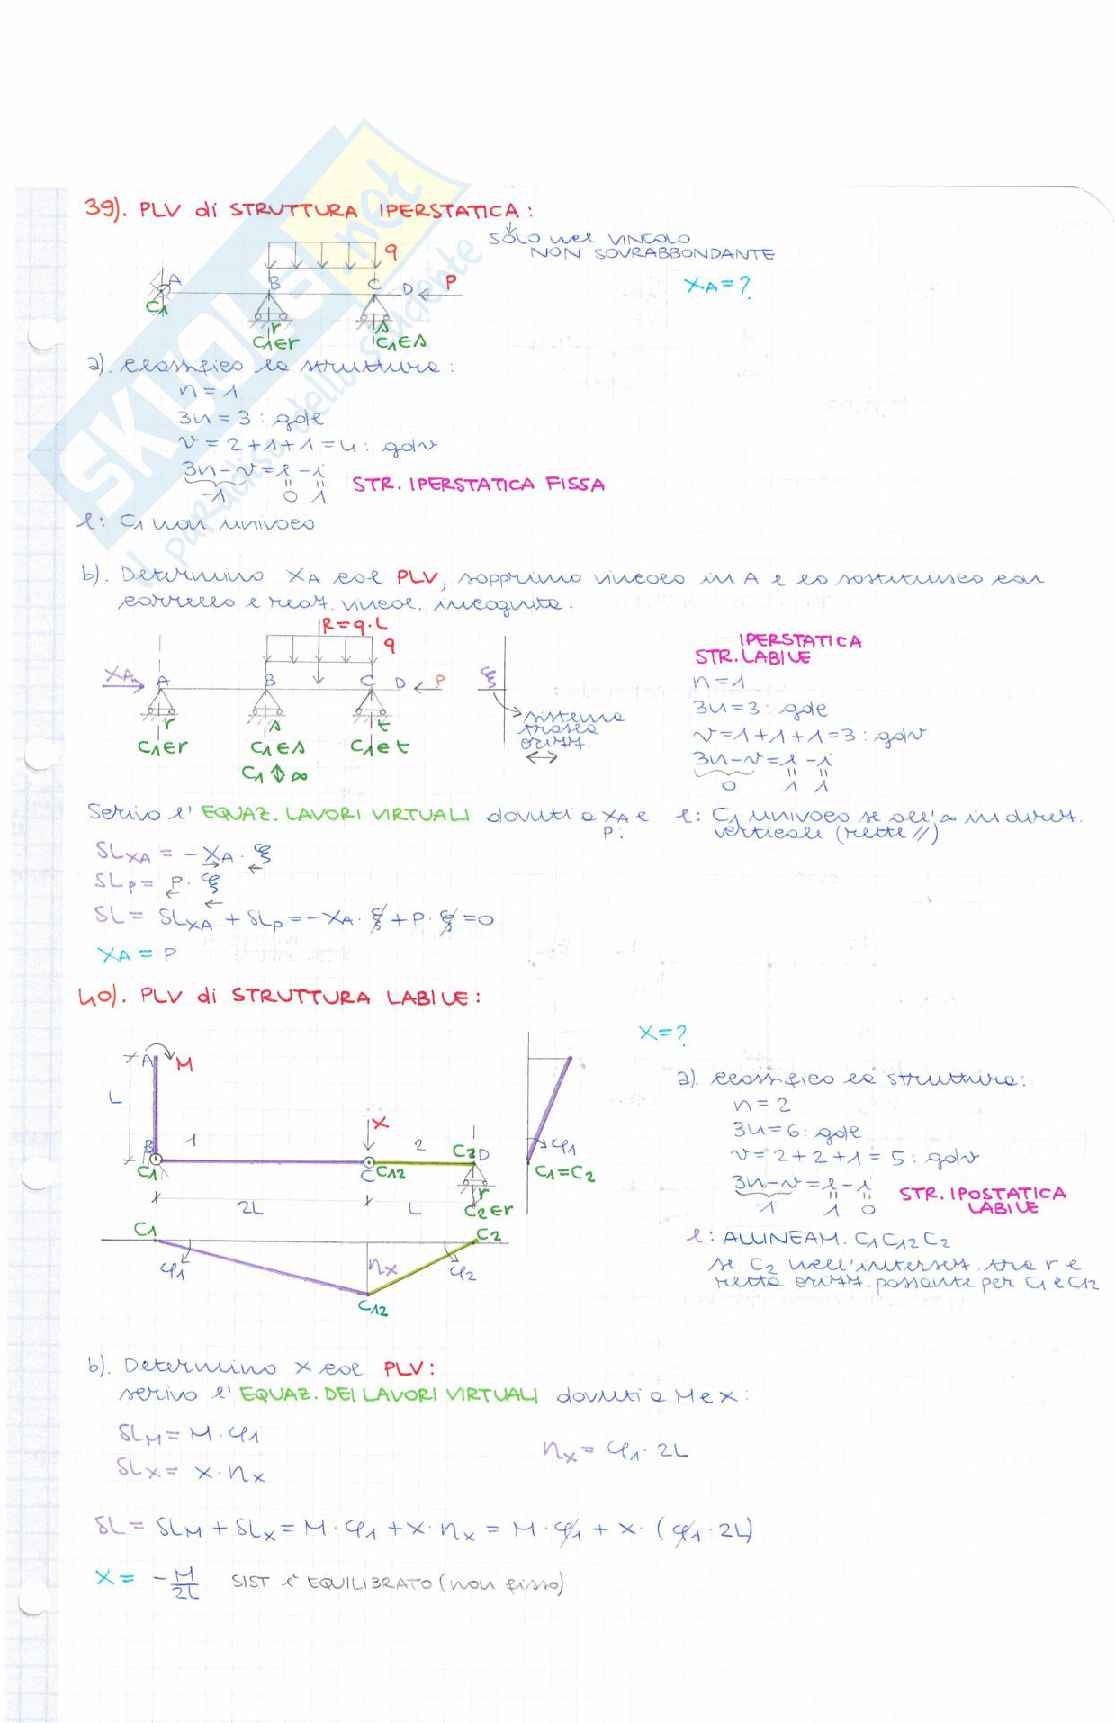 39). PLV di STRUTTURA IPERSTATICA:
SOLO nel VINCOLO
NON SOVRABBONDANTE
q
A B C D P
XA = ?
C1
r
C1∈r
s
C1∈s
a). classifico la struttura:
n = 1
3n = 3 : gdl
v = 2+1+1 = 4 : gdv
3n - v = l - i
-1 0 1
STR. IPERSTATICA FISSA
l: C1 non univoco
b). Determino XA col PLV, sopprimo vincolo in A e lo sostituisco con
carrello e reaz. vincol. incognita.
R = q·L
q
XA A B C D P
ξ
r s t
C1∈r C1∈s C1∈t
C1 ↕ ∞
sistema
trasla
orizz.
IPERSTATICA
STR. LABILE
n = 1
3n = 3 : gdl
v = 1+1+1 = 3 : gdv
3n - v = l - i
0 1 1
Scrivo l' EQUAZ. LAVORI VIRTUALI dovuti a XA e P:
l: C1 univoco se all'∞ in direz.
verticale (rette //)
δLXA = - XA · ξ
δLP = P · ξ
δL = δLXA + δLP = - XA · ξ + P · ξ = 0
XA = P
40). PLV di STRUTTURA LABILE:
X = ?
A M
L
B 1
C1
X
C C12
2
C2 D
r
C2∈r
2L L
φ1
C1=C2
C1 C2
φ1 ηX φ2
C12
a). classifico la struttura:
n = 2
3n = 6 : gdl
v = 2+2+1 = 5 : gdv
3n - v = l - i
1 1 0
STR. IPOSTATICA
LABILE
l: ALLINEAM. C1 C12 C2
se C2 nell'intersez. tra r e
retta orizz. passante per C1 e C12
b). Determino X col PLV:
scrivo l' EQUAZ. DEI LAVORI VIRTUALI dovuti a M e X:
δLM = M · φ1
ηX = φ1 · 2L
δLX = X · ηX
δL = δLM + δLX = M · φ1 + X · ηX = M · φ1 + X · (φ1 · 2L)
X = - M/2L SIST è EQUILIBRATO (non fisso)
SKUOLA.net
il paradiso dello studente